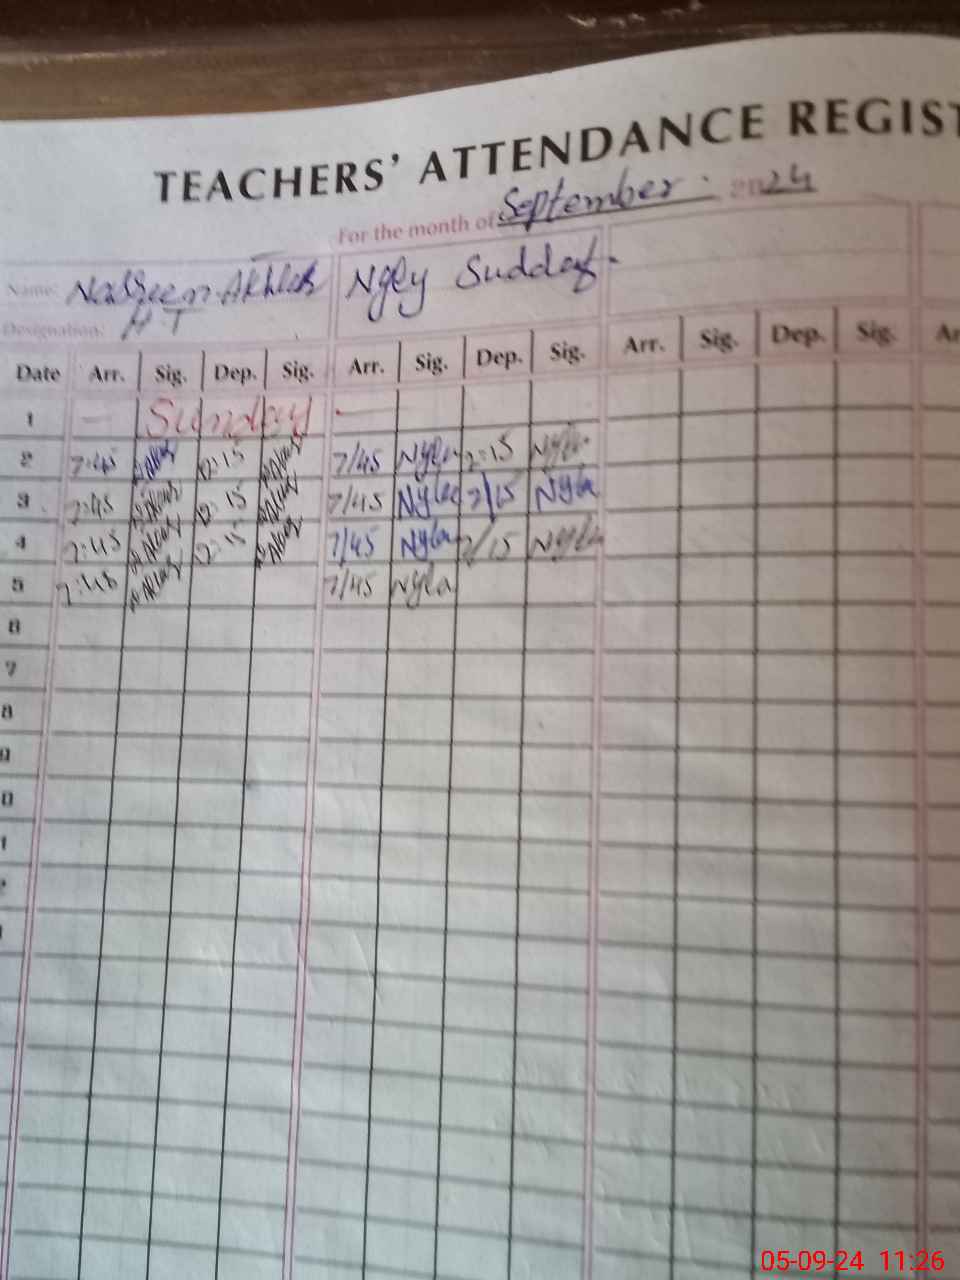 TEACHERS' ATTENDANCE REGIST
For the month of September 2024
Name: Nasreen Akhtar Nyly Suddaf.
Designation: H T
Date Arr. Sig. Dep. Sig. Arr. Sig. Dep. Sig. Arr. Sig. Dep. Sig. Ar
1 — Sunday —
2 7:45 2:15 7/45 Nyla 2:15 Nyla
3 7:45 2:15 7/45 Nyla 2/15 Nyla
4 7:45 2:15 7/45 Nyla 2/15 Nyla
5 7:45 7/45 Nyla
6
7
8
9
0
1
2
05-09-24 11:26